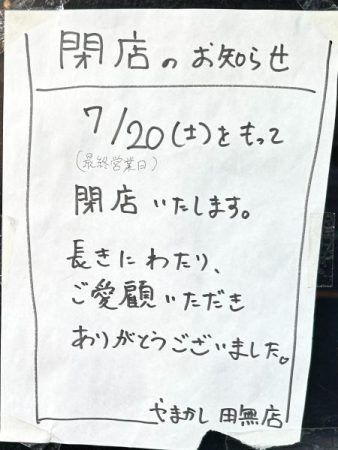 閉店のお知らせ
7/20(土)をもって
(最終営業日)
閉店いたします。
長きにわたり、
ご愛顧いただき
ありがとうございました。
やまかし 田無店